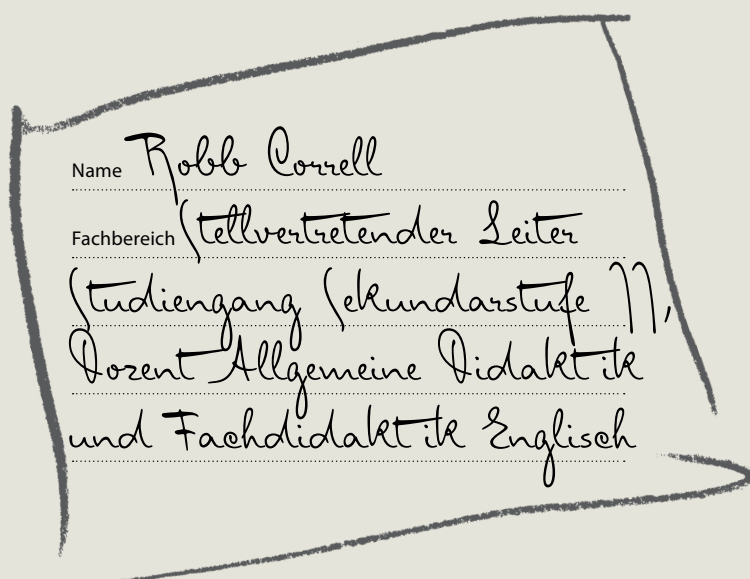 Name Robb Correll
Fachbereich Stellvertretender Leiter
Studiengang Sekundarstufe II,
Dozent Allgemeine Didaktik
und Fachdidaktik Englisch